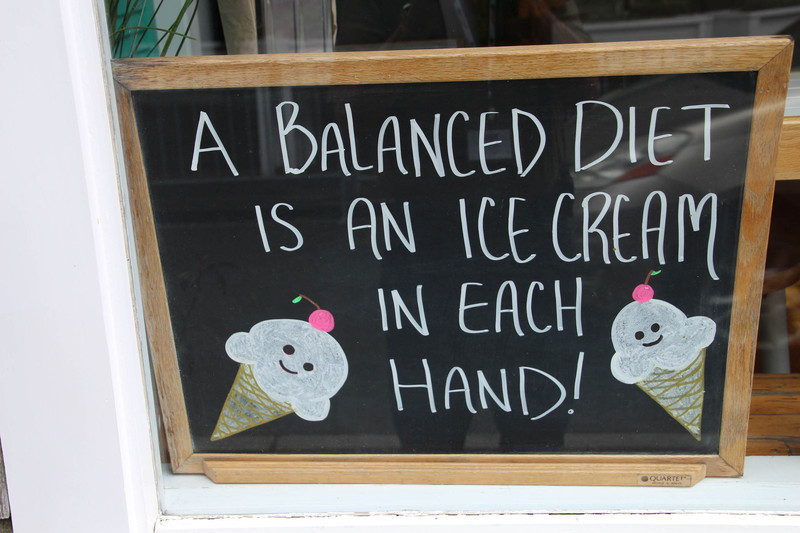 A BALANCED DIET
IS AN ICE CREAM
IN EACH
HAND!
QUARTET